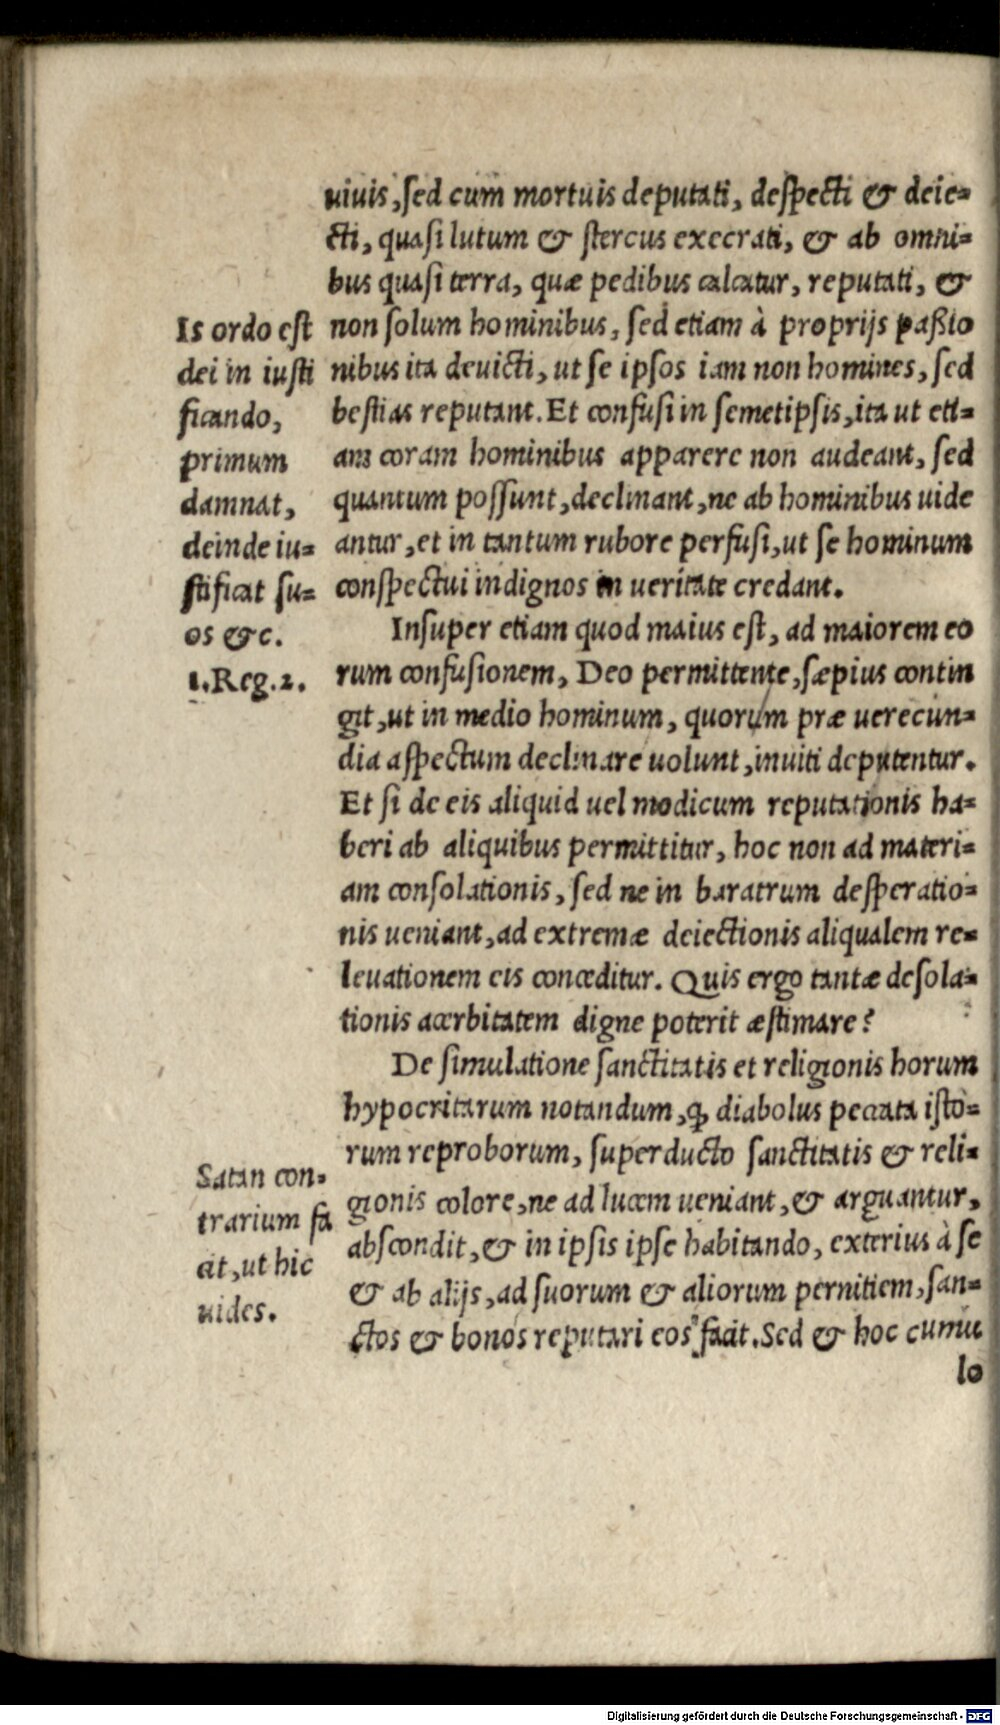 uiuis, sed cum mortuis deputati, despecti & deie-
cti, quasi lutum & stercus execrati, & ab omni-
bus quasi terra, quæ pedibus calcatur, reputati, &
non solum hominibus, sed etiam à proprijs paßio
nibus ita deuicti, ut se ipsos iam non homines, sed
bestias reputant. Et confusi in semetipsis, ita ut eti-
am coram hominibus apparere non audeant, sed
quantum possunt, declinant, ne ab hominibus uide
antur, et in tantum rubore perfusi, ut se hominum
conspectui indignos in ueritate credant.
Is ordo est
dei in iusti
ficando,
primum
damnat,
deinde iu-
stificat su-
os &c.
1. Reg. 2.
Insuper etiam quod maius est, ad maiorem eo
rum confusionem, Deo permittente, sæpius contin
git, ut in medio hominum, quorum præ uerecun-
dia aspectum declinare uolunt, inuiti deputentur.
Et si de eis aliquid uel modicum reputationis ha-
beri ab aliquibus permittitur, hoc non ad materi-
am consolationis, sed ne in baratrum desperatio-
nis ueniant, ad extremæ deiectionis aliqualem re-
leuationem eis conceditur. Quis ergo tantæ desola-
tionis acerbitatem digne poterit æstimare?
De simulatione sanctitatis et religionis horum
hypocritarum notandum, ꝙ diabolus peccata isto-
rum reproborum, superducto sanctitatis & reli-
gionis colore, ne ad lucem ueniant, & arguantur,
abscondit, & in ipsis ipse habitando, exterius à se
& ab alijs, ad suorum & aliorum pernitiem, san-
ctos & bonos reputari eos facit. Sed & hoc cumu
lo
Satan con-
trarium fa
cit, ut hic
uides.
Digitalisierung gefördert durch die Deutsche Forschungsgemeinschaft - DFG